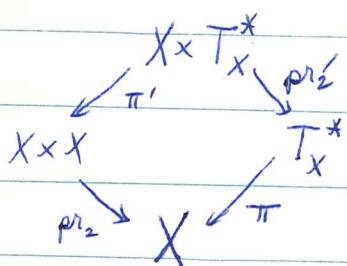 X × T_X^*
π' pr_2'
X × X T_X^*
pr_2 π
X